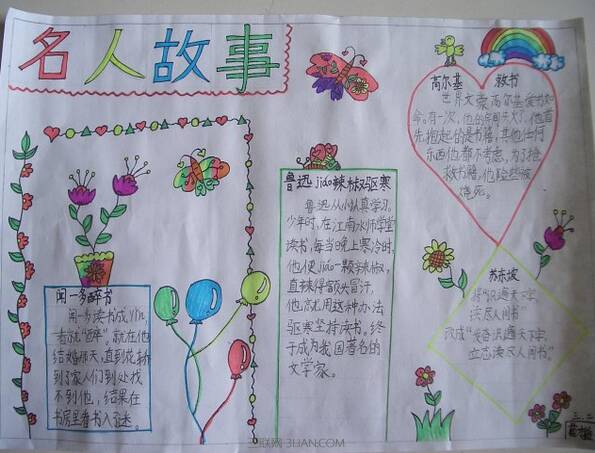 名人故事
闻一多醉书
闻一多读书成yǐn,一
看就"醉"。就在他
结婚那天,直到花轿
到了家,人们到处找
不到他,结果在
书房里看书入了迷。
鲁迅jiáo辣椒驱寒
鲁迅从小认真学习。
少年时,在江南水师学堂
读书,每当晚上寒冷时,
他便jiáo一颗辣椒,
直辣得额头冒汗。
他就用这种办法
驱寒坚持读书。终
于成为我国著名的
文学家。
高尔基 救书
世界文豪高尔基爱书如
命。有一次,他的房间失火了,他首
先抱起的是书籍,其他任何
东西他都不考虑。为了抢
救书籍,他险些被
烧死。
苏东坡
识遍天下字,
读尽人间书"
改成"发奋识遍天下字,
立志读尽人间书。"
三联网 3LIAN.COM